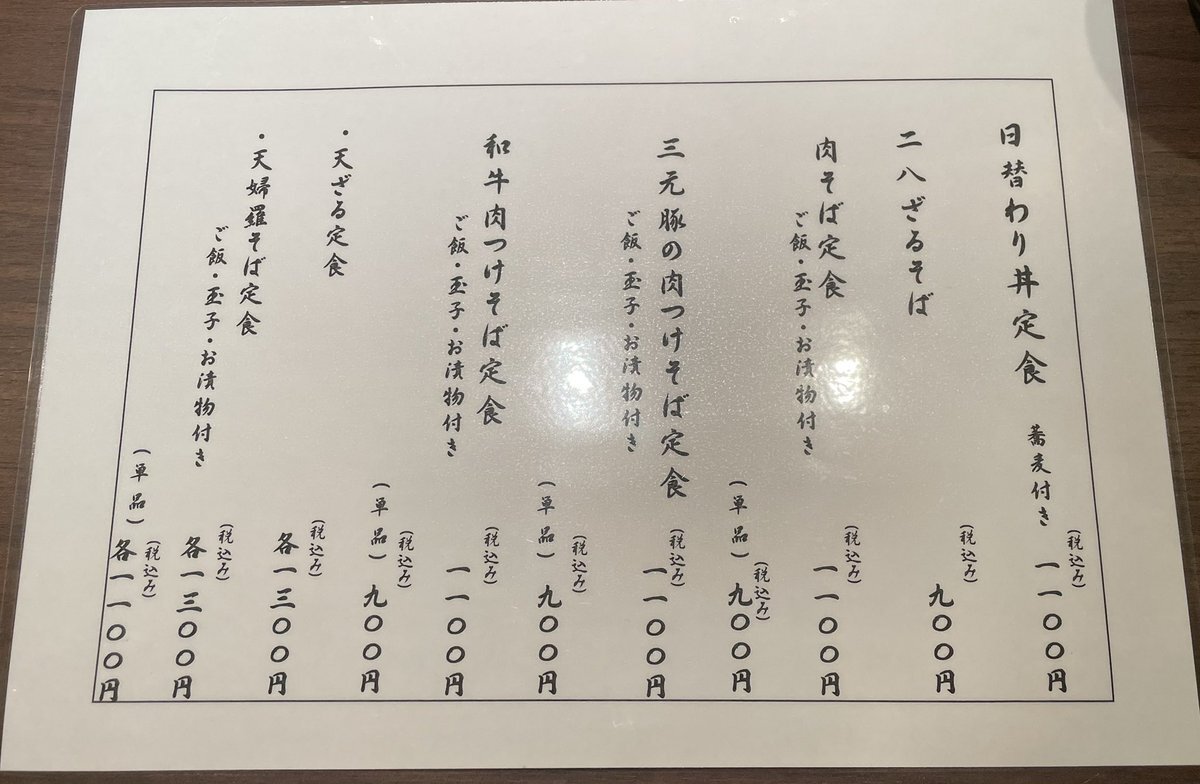 日替わり丼定食 蕎麦付き (税込み) 一一〇〇円
二八ざるそば (税込み) 九〇〇円
肉そば定食 (税込み) 一一〇〇円
ご飯・玉子・お漬物付き
(単品) (税込み) 九〇〇円
三元豚の肉つけそば定食 (税込み) 一一〇〇円
ご飯・玉子・お漬物付き
(単品) (税込み) 九〇〇円
和牛肉つけそば定食 (税込み) 一一〇〇円
ご飯・玉子・お漬物付き
(単品) (税込み) 九〇〇円
・天ざる定食 (税込み) 各一三〇〇円
・天婦羅そば定食 (税込み) 各一三〇〇円
ご飯・玉子・お漬物付き
(単品) (税込み) 各一一〇〇円